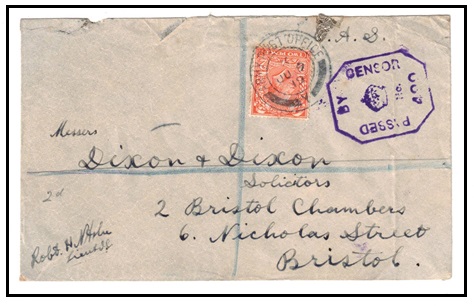 O.A.S.
PASSED BY CENSOR
No. 400
Messers
Dixon & Dixon
Solicitors
2 Bristol Chambers
6. Nicholas Street
Bristol.
2d
Robt. H.